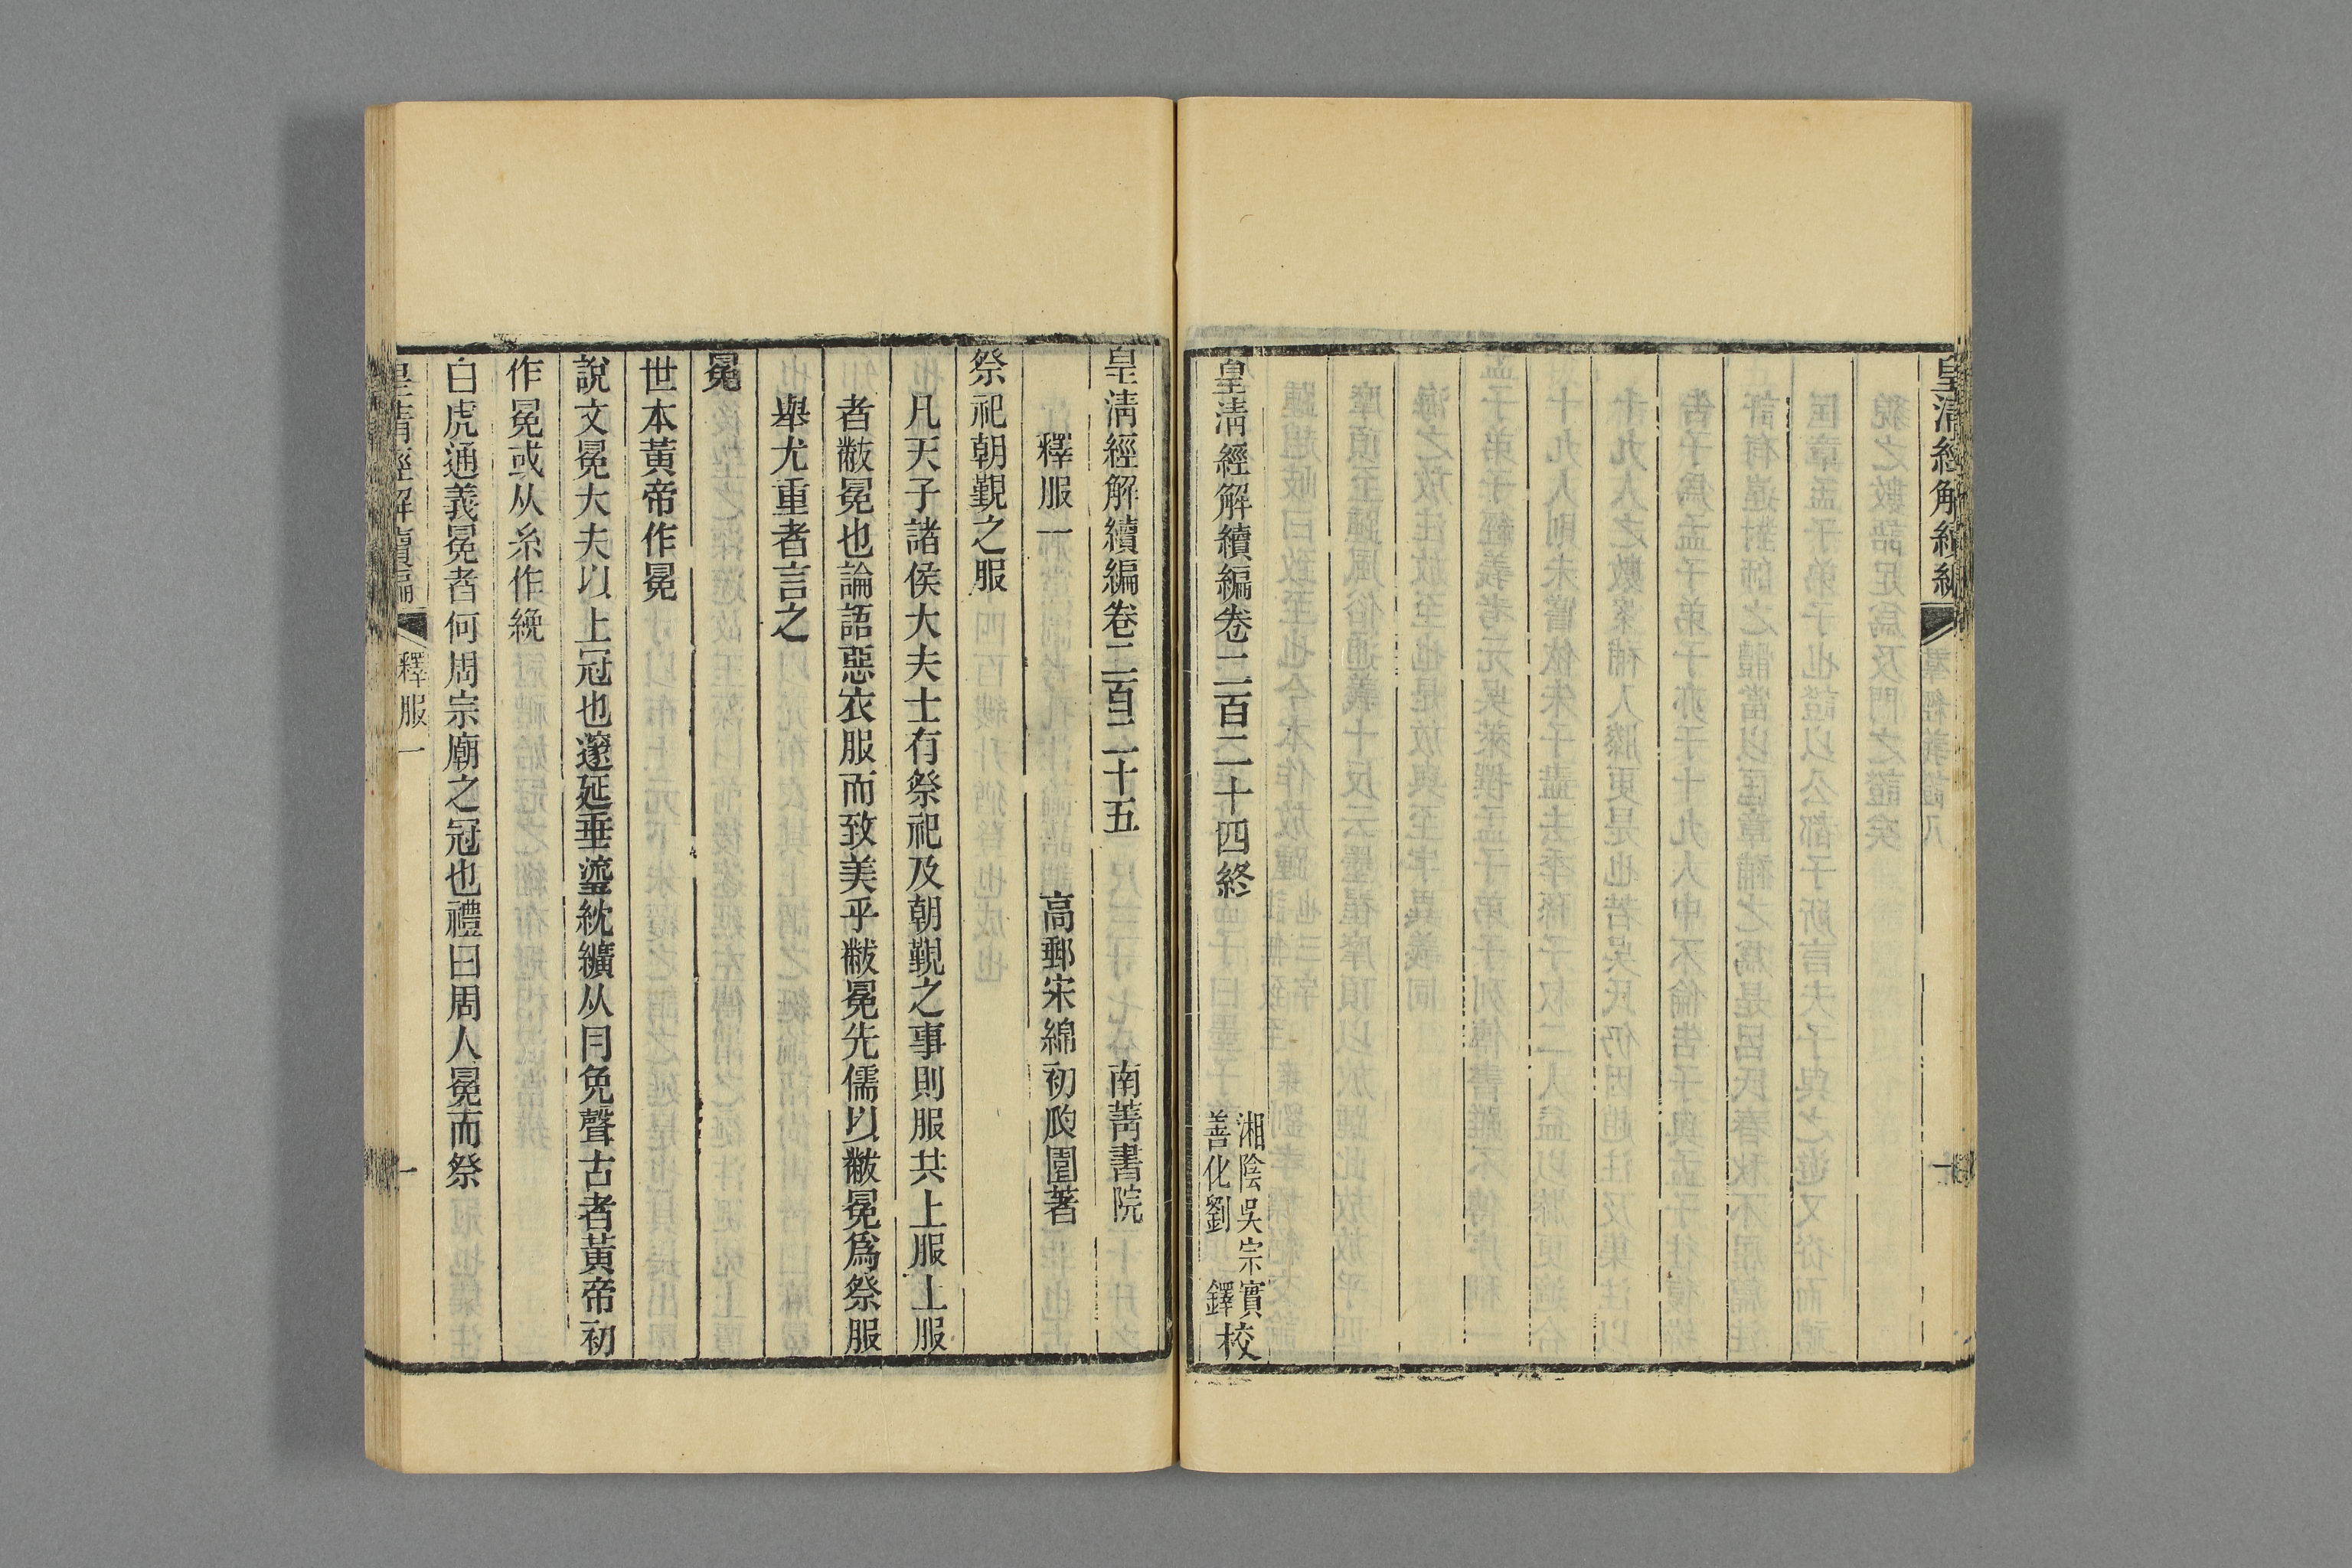 皇清經解續編
皇清經解續編卷二百二十四終
湘陰吳宗實
善化劉鐸
校
皇清經解續編卷二百二十五 南菁書院
釋服一 高郵宋綿初瓞園著
祭祀朝覲之服
凡天子諸侯大夫士有祭祀及朝覲之事則服共上服上服
者黻冕也論語惡衣服而致美乎黻冕先儒以黻冕爲祭服
舉尤重者言之
冕
世本黃帝作冕
說文冕大夫以上冠也邃延垂瑬紞纊从冃免聲古者黃帝初
作冕或从糸作絻
白虎通義冕者何周宗廟之冠也禮曰周人冕而祭
皇清經解續編 釋服一 一